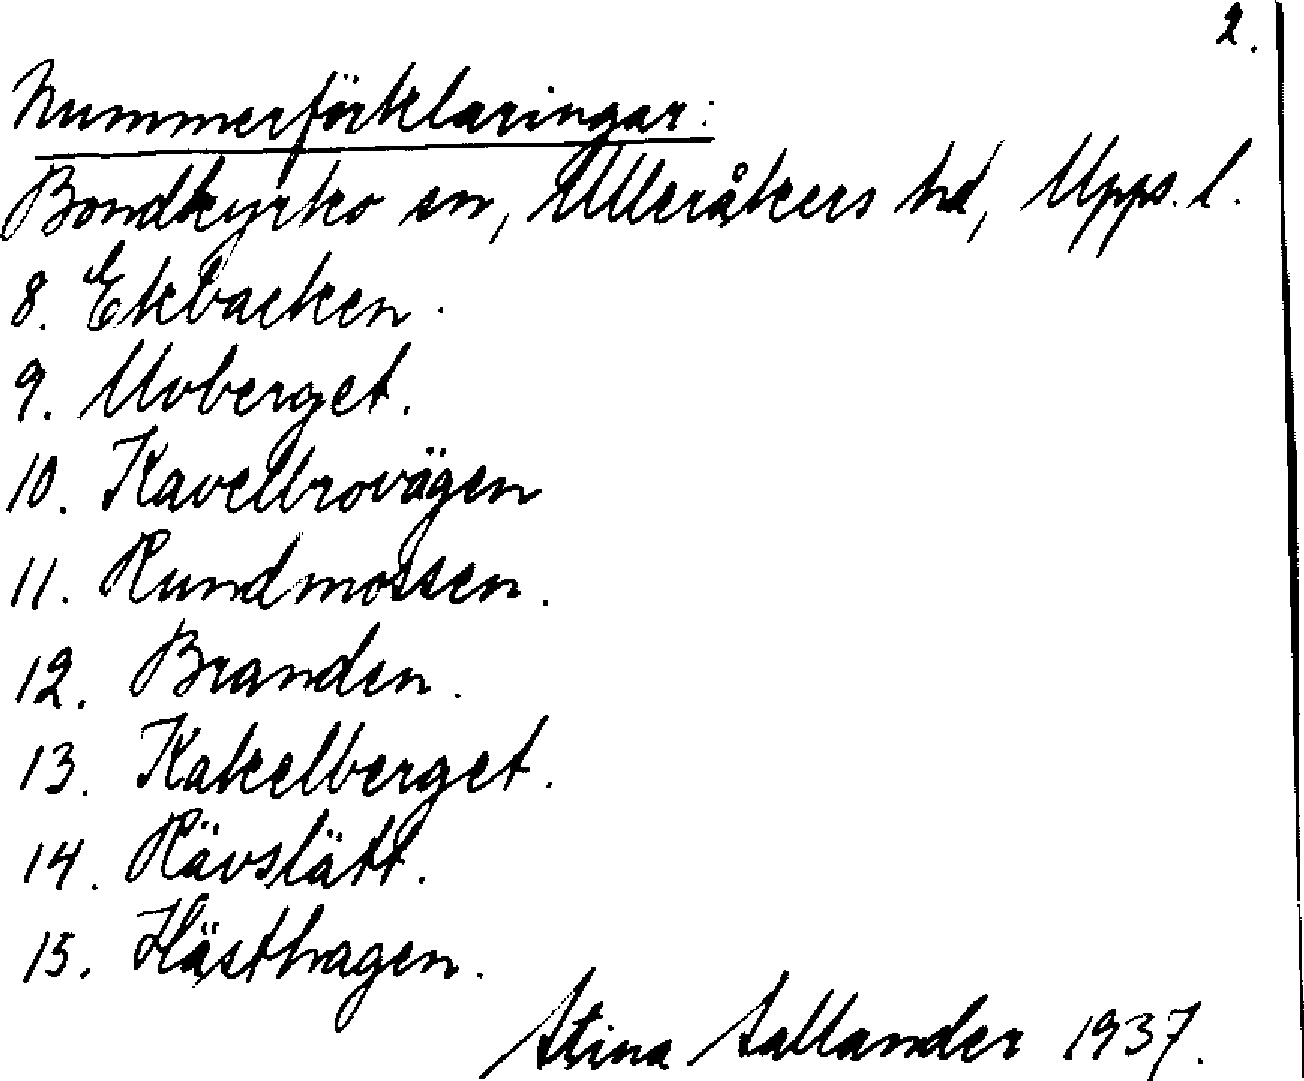 2.
Nummerförklaringar:
Bondkyrko sn, Ulleråkers hd, Upps. l.
8. Ekbacken.
9. Uvberget.
10. Kavelbrovägen
11. Rundmossen.
12. Branden.
13. Kakelberget.
14. Rävslätt.
15. Hästhagen.
Stina Sallander 1937.